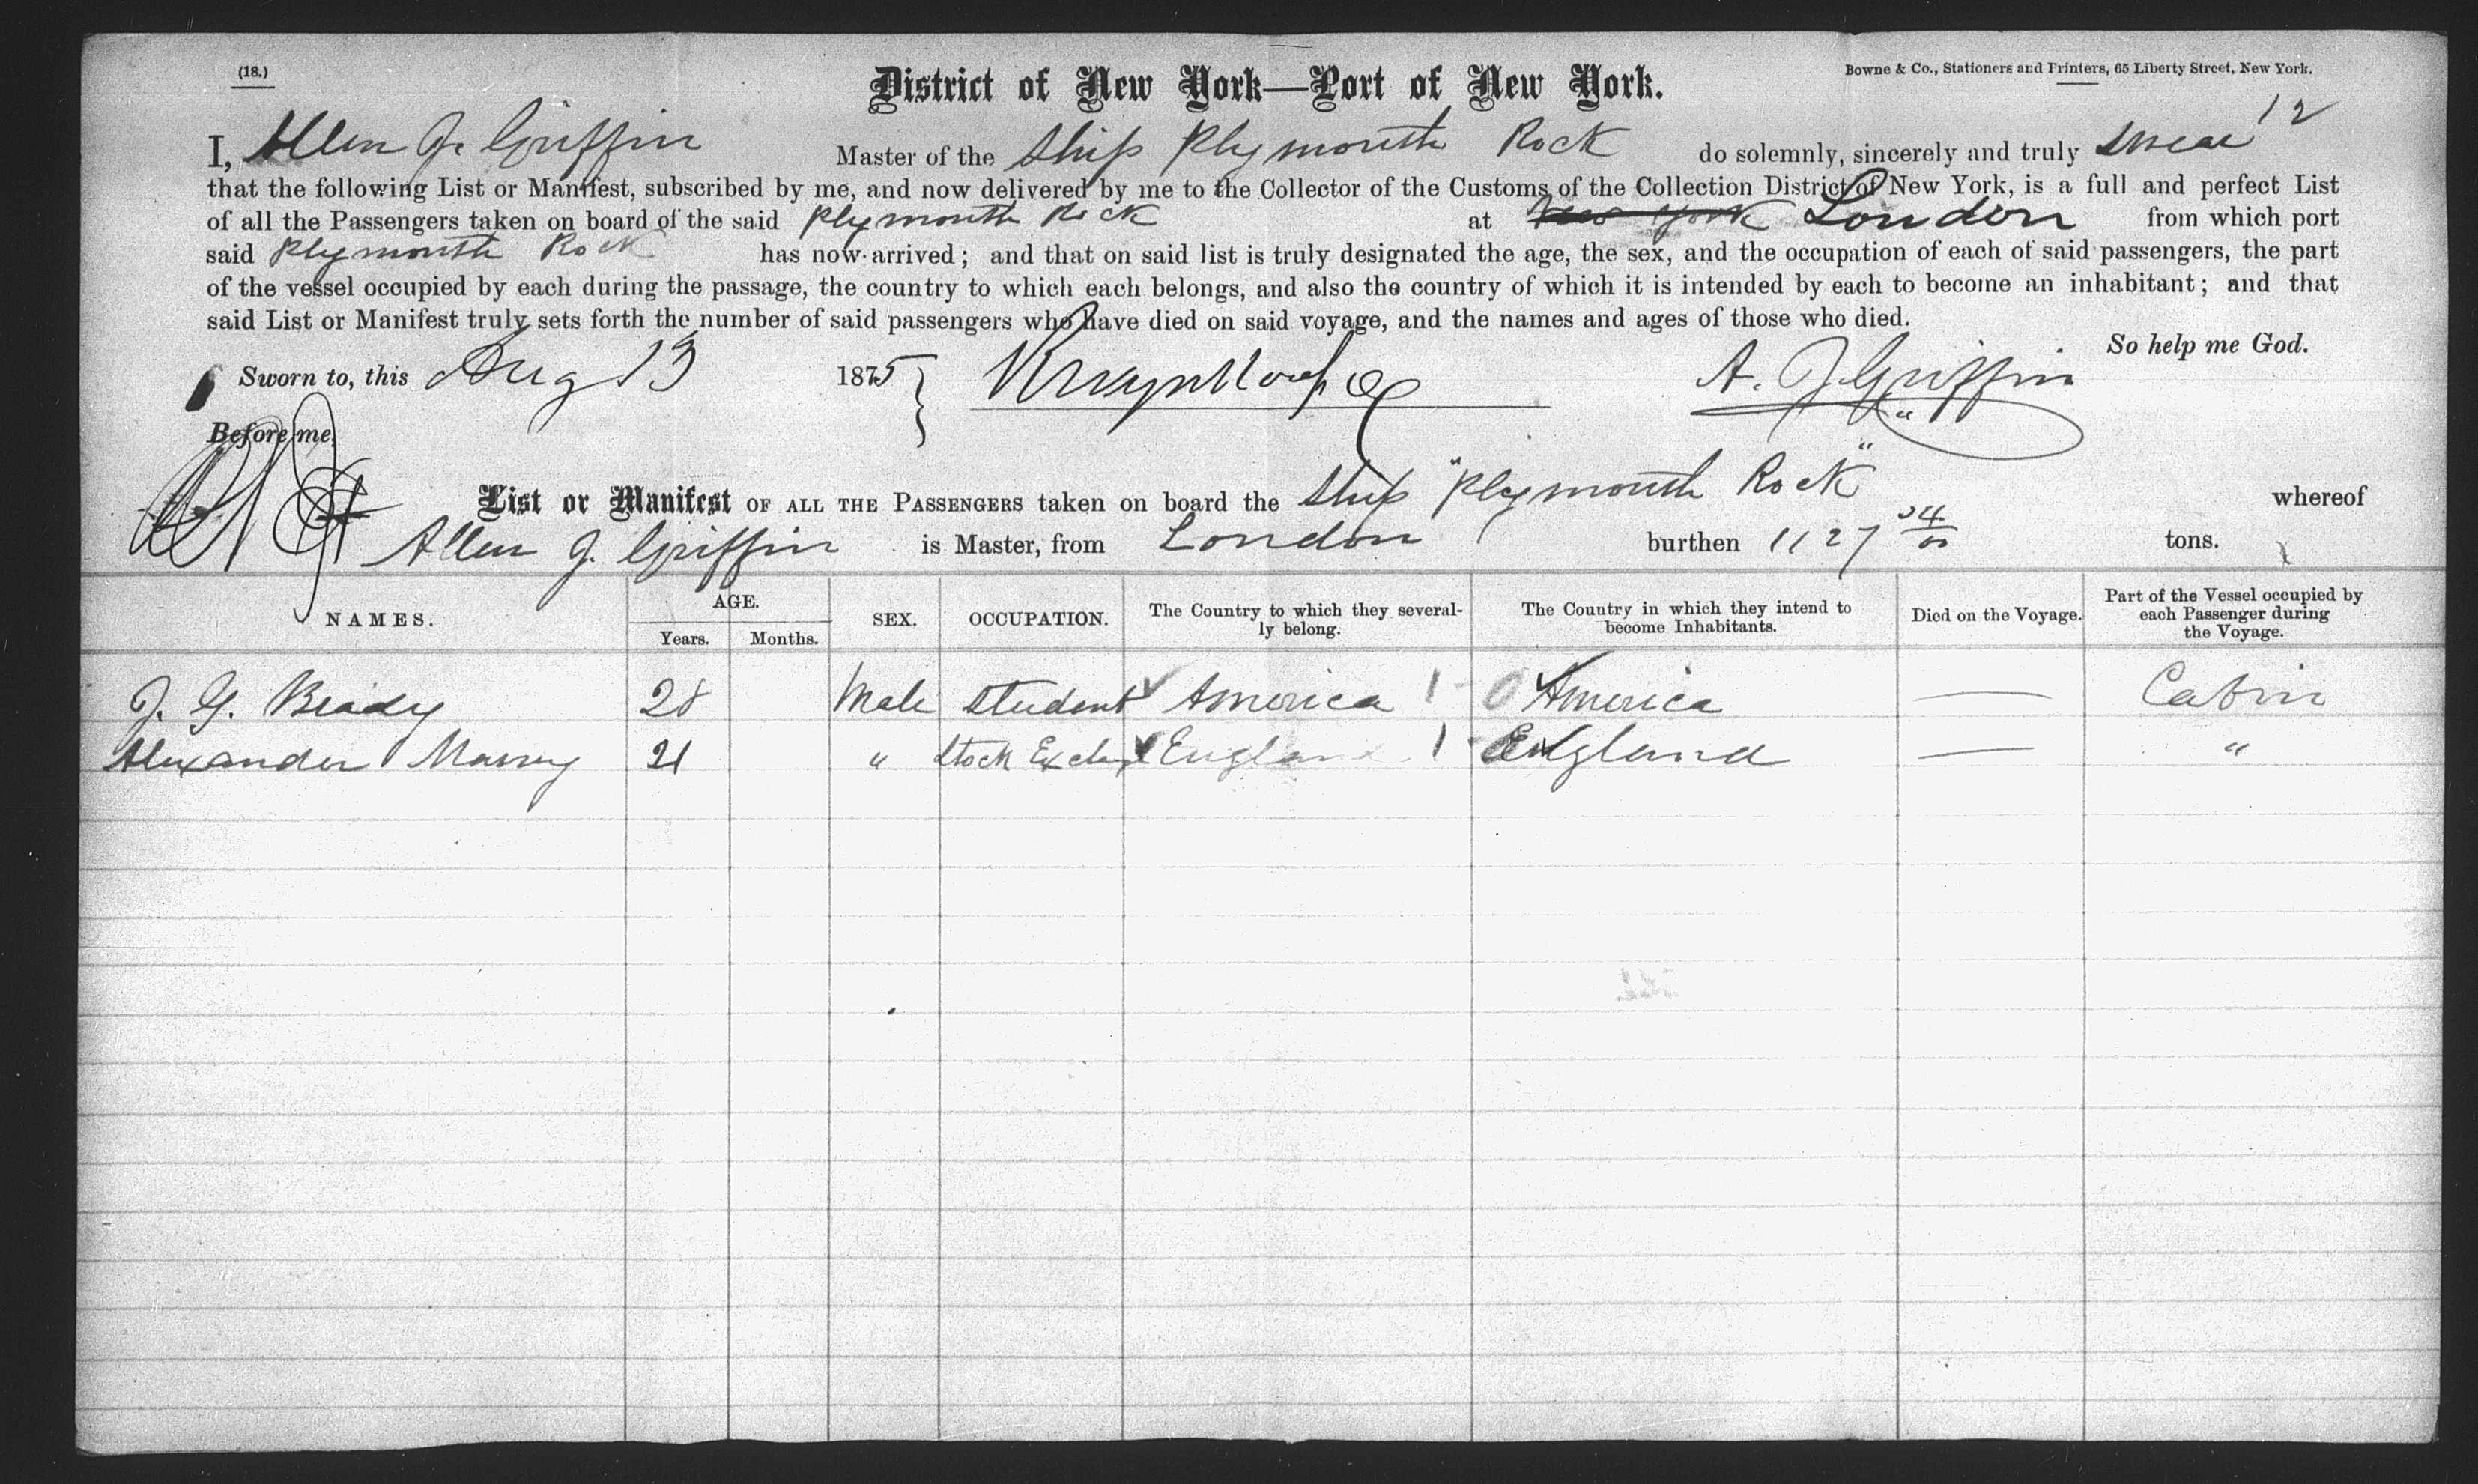 (18.)
District of New York—Port of New York.
Bowne & Co., Stationers and Printers, 65 Liberty Street, New York.
12
I, Allen J. Griffin Master of the Ship Plymouth Rock do solemnly, sincerely and truly swear
that the following List or Manifest, subscribed by me, and now delivered by me to the Collector of the Customs of the Collection District of New York, is a full and perfect List
of all the Passengers taken on board of the said Plymouth Rock at New York London from which port
said Plymouth Rock has now arrived; and that on said list is truly designated the age, the sex, and the occupation of each of said passengers, the part
of the vessel occupied by each during the passage, the country to which each belongs, and also the country of which it is intended by each to become an inhabitant; and that
said List or Manifest truly sets forth the number of said passengers who have died on said voyage, and the names and ages of those who died.
So help me God.
Sworn to, this Aug 13 1875 A. J. Griffin
Before me,
List or Manifest OF ALL THE PASSENGERS taken on board the Ship "Plymouth Rock" whereof
Allen J. Griffin is Master, from London burthen 1127 tons.
NAMES. AGE. Years. Months. SEX. OCCUPATION. The Country to which they severally belong. The Country in which they intend to become Inhabitants. Died on the Voyage. Part of the Vessel occupied by each Passenger during the Voyage.
J. G. Brady 28 Male Student America 1 - 0 America — Cabin
Alexander 21 " Stock Exchange England 1 - England — "